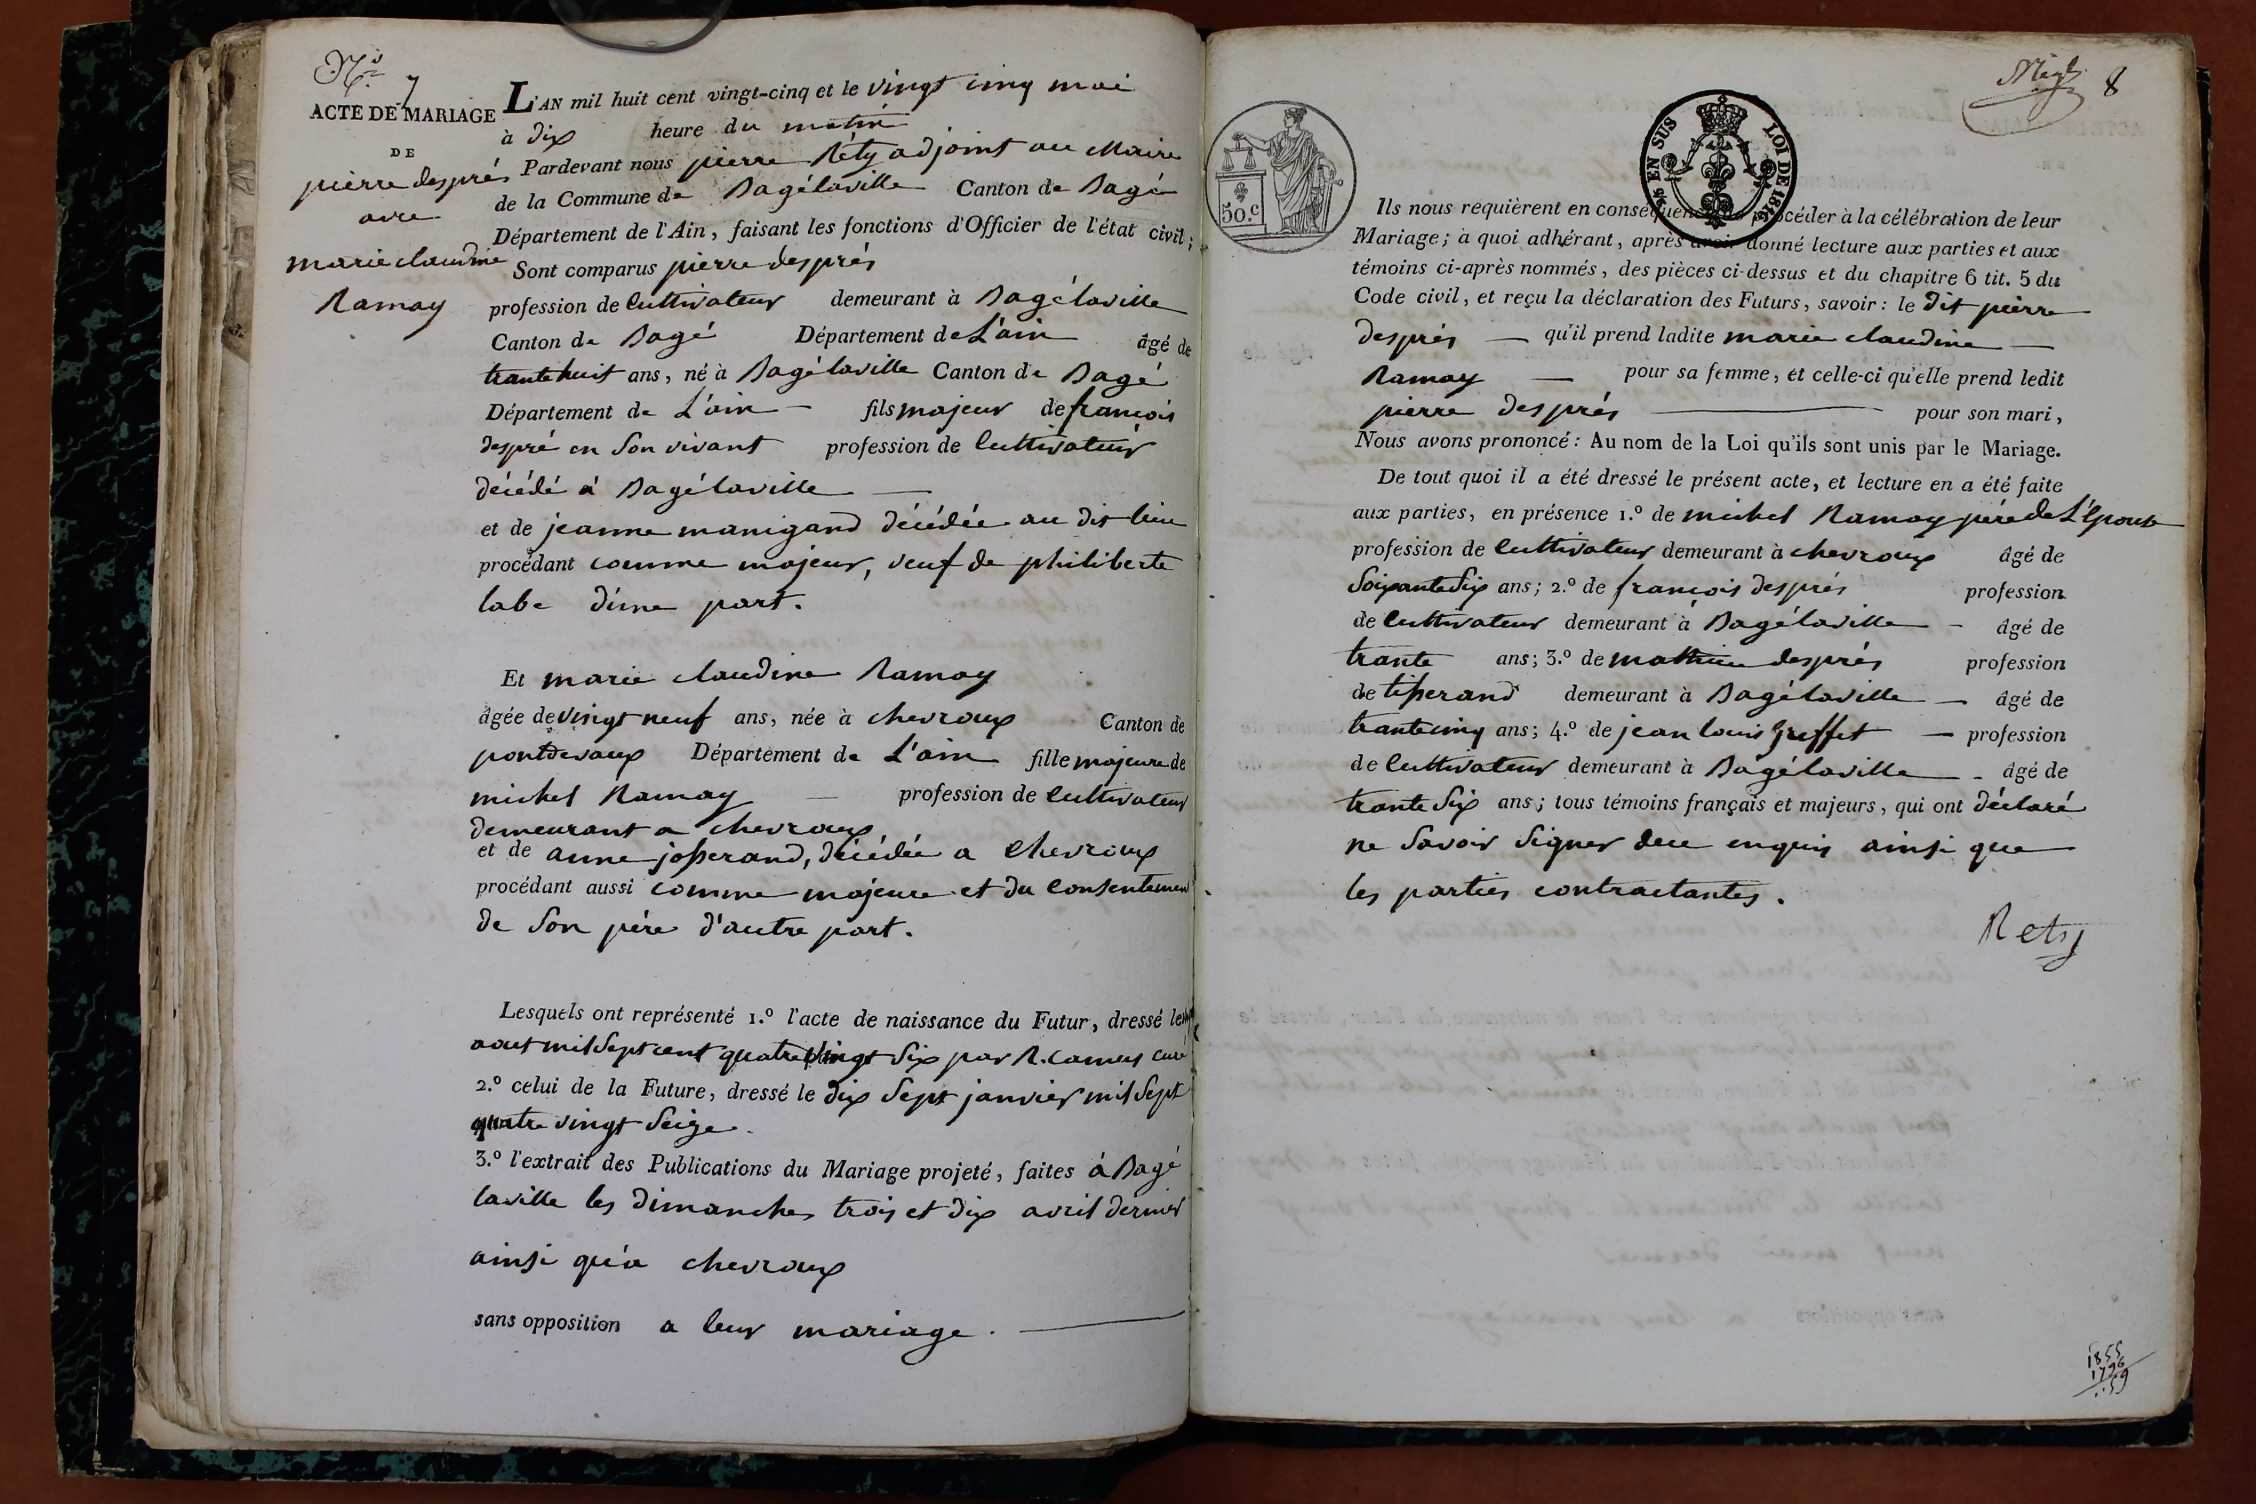 N.o 7
ACTE DE MARIAGE
DE
pierre després
avec
marie claudine
Ramay
L'AN mil huit cent vingt-cinq et le vingt cinq mai
à dix heure du matin
Pardevant nous pierre Réty adjoint au Maire
de la Commune de Bagélaville Canton de Bagé
Département de l'Ain, faisant les fonctions d'Officier de l'état civil;
Sont comparus pierre després
profession de Cultivateur demeurant à Bagélaville
Canton de Bagé Département de L'ain âgé de
trantehuit ans, né à Bagélaville Canton de Bagé
Département de L'ain — fils majeur de françois
despré en Son vivant profession de Cultivateur
décédé à Bagélaville —
et de jeanne manigand décédée au dit lieu
procédant comme majeur, veuf de philiberte
labe d'une part.
Et marie claudine Ramay
âgée de vingt neuf ans, née à chevroux Canton de
pontdevaux Département de L'ain fille majeure de
michel Ramay — profession de Cultivateur
demeurant a chevroux
et de anne josserand, décédée a Chevroux
procédant aussi comme majeure et du Consentement
de Son père d'autre part.
Lesquels ont représenté 1.º l'acte de naissance du Futur, dressé le
aout mil Sept cent quatre vingt Six par R. Camus curé
2.º celui de la Future, dressé le dix Sept janvier mil Sept
quatre vingt Seize.
3.º l'extrait des Publications du Mariage projeté, faites à Bagé
laville les dimanches trois et dix avril dernier
ainsi qu'a chevroux
sans opposition a leur mariage. —
8
50.c
EN SUS
LOI DE 1816
Ils nous requièrent en conséquence de procéder à la célébration de leur
Mariage; à quoi adhérant, après avoir donné lecture aux parties et aux
témoins ci-après nommés, des pièces ci-dessus et du chapitre 6 tit. 5 du
Code civil, et reçu la déclaration des Futurs, savoir: le dit pierre
després — qu'il prend ladite marie claudine —
Ramay — pour sa femme, et celle-ci qu'elle prend ledit
pierre després — pour son mari,
Nous avons prononcé: Au nom de la Loi qu'ils sont unis par le Mariage.
De tout quoi il a été dressé le présent acte, et lecture en a été faite
aux parties, en présence 1.º de michel Ramay père de L'Epouse
profession de Cultivateur demeurant à chevroux âgé de
Soixante Six ans; 2.º de françois després profession
de Cultivateur demeurant à Bagélaville — âgé de
trante ans; 3.º de mathieu després profession
de tisserand demeurant à Bagélaville — âgé de
trantecinq ans; 4.º de jean louis Greffet — profession
de Cultivateur demeurant à Bagélaville — âgé de
trante Six ans; tous témoins français et majeurs, qui ont déclaré
ne Savoir Signer de ce enquis ainsi que
les parties contractantes.
Rety
1855
1796
59